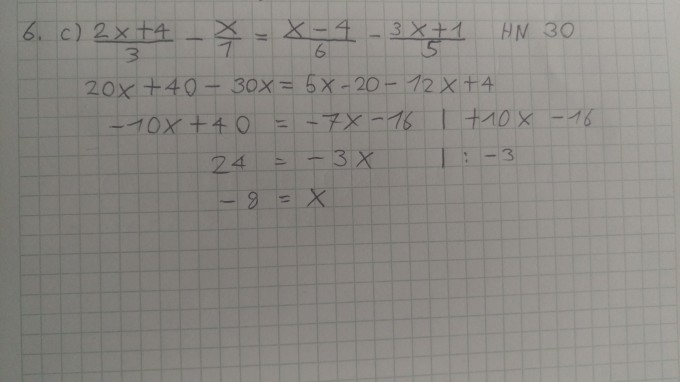 6. c) (2x+4)/3 - x/1 = (x-4)/6 - (3x+1)/5 HN 30
20x+40-30x=5x-20-12x+4
-10x+40 = -7x-16 | +10x -16
24 = -3x | : -3
-8 = x